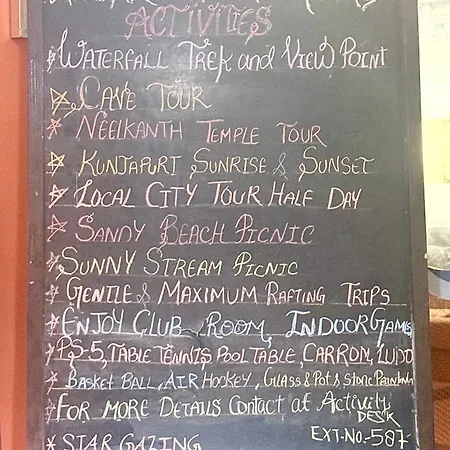 ACTIVITIES
WATERFALL TREK and VIEW POINT
CAVE TOUR
NEELKANTH TEMPLE TOUR
KUNJAPURI SUNRISE & SUNSET
LOCAL CITY TOUR HALF DAY
SANDY BEACH PICNIC
SUNNY STREAM PICNIC
GENTLE & MAXIMUM RAFTING TRIPS
ENJOY CLUB ROOM, INDOOR GAMES
PS-5, TABLE TENNIS POOL TABLE, CARROM, LUDO
BASKET BALL, AIR HOCKEY, GLASS & POT & STONE PAINTING
FOR MORE DETAILS CONTACT at ACTIVITY
DESK
EXT-NO.-587
STAR GAZING